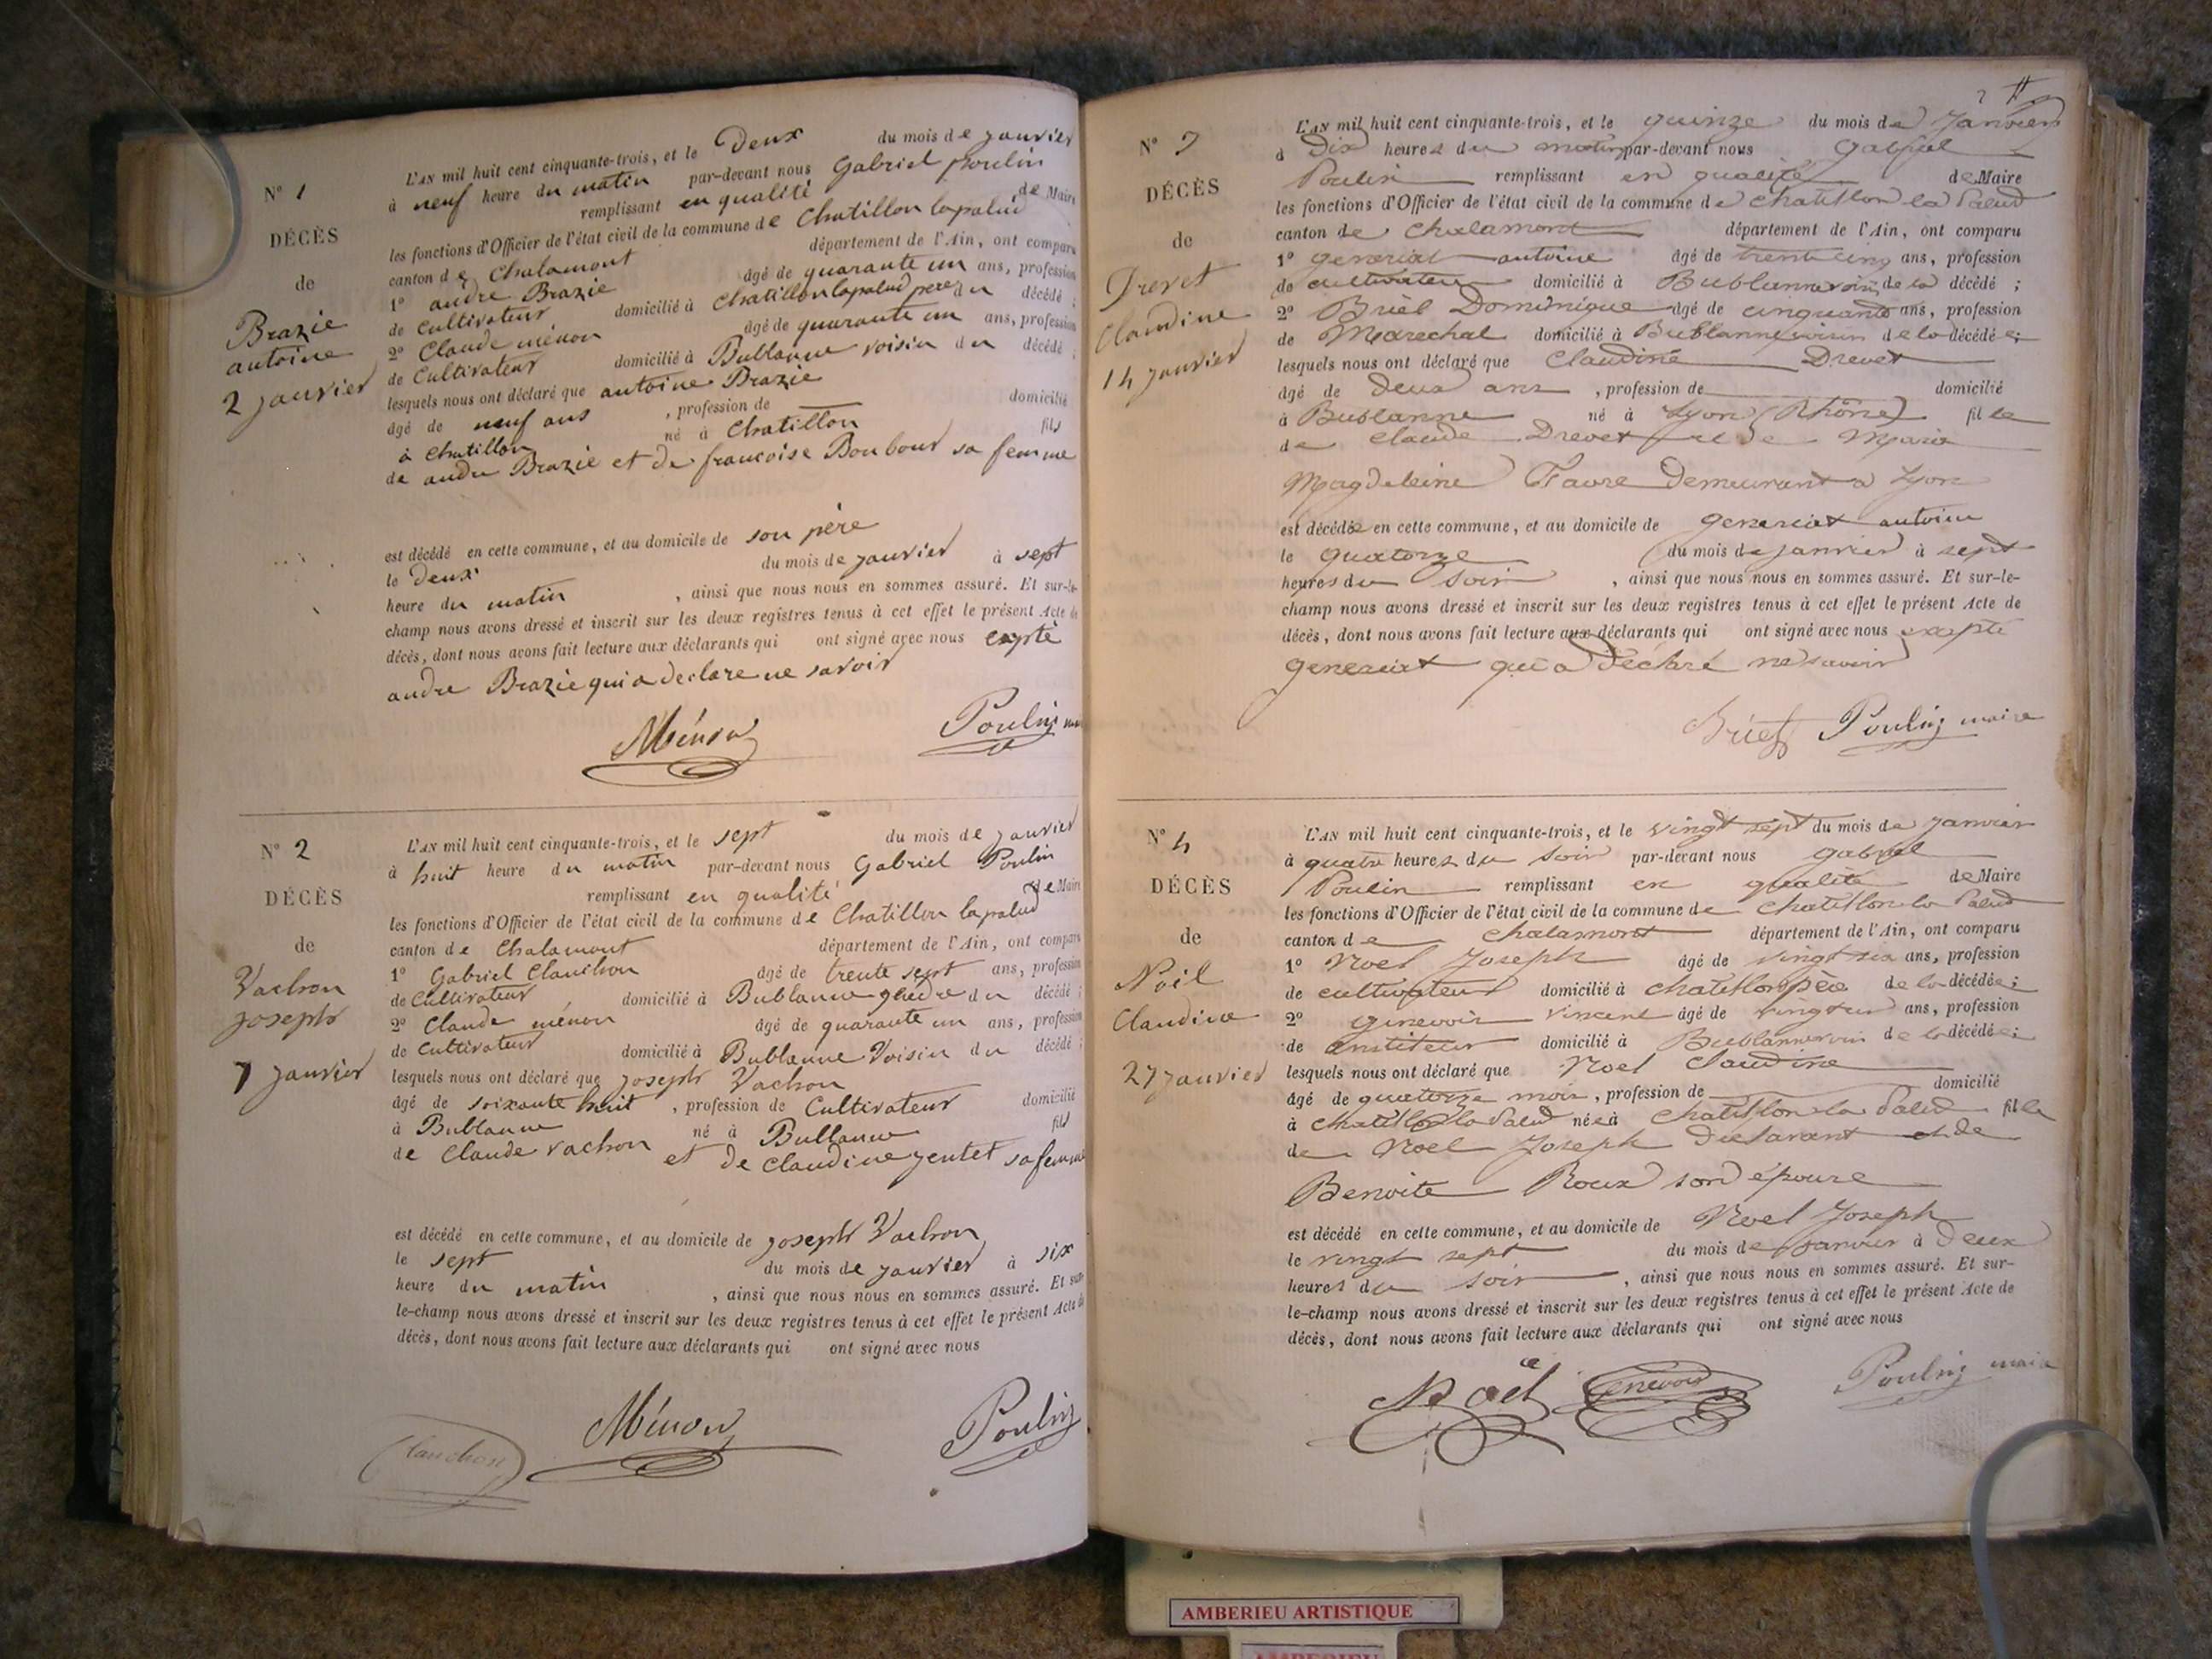 N° 1
DÉCÈS
de
Brazie
antoine
2 janvier
L'AN mil huit cent cinquante-trois, et le Deux du mois de janvier
à neuf heure du matin par-devant nous Gabriel poulin
remplissant en qualité de Maire
les fonctions d'Officier de l'état civil de la commune de Chatillon lapalud
canton de Chalamont département de l'Ain, ont comparu
1° andre Brazie âgé de quarante un ans, profession
de Cultivateur domicilié à Chatillon lapalud pere du décédé ;
2° Claude ménon âgé de quarante un ans, profession
de Cultivateur domicilié à Bublanne voisin du décédé ;
lesquels nous ont déclaré que antoine Brazie
âgé de neuf ans , profession de domicilié
à Chatillon né à Chatillon fils
de andre Brazie et de francoise Bonbout sa femme
est décédé en cette commune, et au domicile de son père
le Deux du mois de janvier à sept
heure du matin , ainsi que nous nous en sommes assuré. Et sur-le-
champ nous avons dressé et inscrit sur les deux registres tenus à cet effet le présent Acte de
décès, dont nous avons fait lecture aux déclarants qui ont signé avec nous expté
andre Brazie qui a declare ne savoir
Ménon Poulin
N° 2
DÉCÈS
de
Vachon
joseph
7 janvier
L'AN mil huit cent cinquante-trois, et le sept du mois de janvier
à huit heure du matin par-devant nous Gabriel Poulin
remplissant en qualité de Maire
les fonctions d'Officier de l'état civil de la commune de Chatillon lapalud
canton de Chalamont département de l'Ain, ont comparu
1° Gabriel Clanchon âgé de trente sept ans, profession
de Cultivateur domicilié à Bublanne gendre du décédé ;
2° Claude ménon âgé de quarante un ans, profession
de Cultivateur domicilié à Bublanne Voisin du décédé ;
lesquels nous ont déclaré que joseph Vachon
âgé de soixante huit , profession de Cultivateur domicilié
à Bublanne né à Bublanne fils
de Claude vachon et de Claudine jentet sa femme
est décédé en cette commune, et au domicile de joseph Vachon
le sept du mois de janvier à six
heure du matin , ainsi que nous nous en sommes assuré. Et sur-
le-champ nous avons dressé et inscrit sur les deux registres tenus à cet effet le présent Acte de
décès, dont nous avons fait lecture aux déclarants qui ont signé avec nous
Clanchon Ménon Poulin
N° 3
DÉCÈS
de
Drevet
Claudine
14 janvier
L'AN mil huit cent cinquante-trois, et le quinze du mois de Janvier
à Dix heures du matin par-devant nous Gabriel
Poulin remplissant en qualité de Maire
les fonctions d'Officier de l'état civil de la commune de Chatillon la Palud
canton de Chalamont département de l'Ain, ont comparu
1° generiat antoine âgé de trente cinq ans, profession
de cultivateur domicilié à Bublanne voisin de la décédé ;
2° Briel Dominique âgé de cinquante ans, profession
de Marechal domicilié à Bublanne voisin de la décédée ;
lesquels nous ont déclaré que Claudine Drevet
âgé de Deux ans , profession de domicilié
à Bublanne né à Lyon (Rhône) fille
de Claude Drevet et de Marie
Magdeleine Favre Demeurant a Lyon
est décédée en cette commune, et au domicile de generiat antoine
le quatorze du mois de janvier à sept
heures du soir , ainsi que nous nous en sommes assuré. Et sur-le-
champ nous avons dressé et inscrit sur les deux registres tenus à cet effet le présent Acte de
décès, dont nous avons fait lecture aux déclarants qui ont signé avec nous excepté
generiat qui a Déclaré ne savoir
Briel Poulin maire
N° 4
DÉCÈS
de
Noël
Claudine
27 janvier
L'AN mil huit cent cinquante-trois, et le vingt sept du mois de janvier
à quatre heures du soir par-devant nous gabriel
Poulin remplissant en qualité de Maire
les fonctions d'Officier de l'état civil de la commune de Chatillon la Palud
canton de Chalamont département de l'Ain, ont comparu
1° Noel Joseph âgé de vingt six ans, profession
de cultivateur domicilié à chatillon père de la décédée ;
2° Genevois Vincent âgé de ans, profession
de domicilié à Bublanne voisin de la décédée ;
lesquels nous ont déclaré que Noel Claudine
âgé de quatorze mois , profession de domicilié
à Chatillon la Palud née à Chatillon la Palud fille
de Noel Joseph Declarant et de
Benoite Roux son épouse
est décédé en cette commune, et au domicile de Noel Joseph
le vingt sept du mois de janvier à Deux
heures du soir , ainsi que nous nous en sommes assuré. Et sur-
le-champ nous avons dressé et inscrit sur les deux registres tenus à cet effet le présent Acte de
décès, dont nous avons fait lecture aux déclarants qui ont signé avec nous
Noël Genevois Poulin maire
AMBERIEU ARTISTIQUE
AMBERIEU